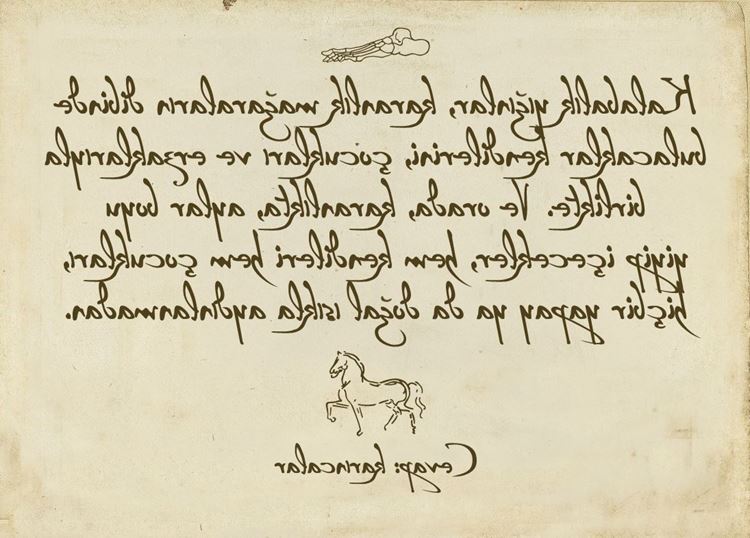 Kalabalık yığınlar, karanlık mağaraların dibinde
bulacaklar kendilerini, çocukları ve erzaklarıyla
birlikte. Ve orada, karanlıkta, aylar boyu
yiyip içecekler, hem kendileri hem çocukları,
hiçbir yapay ya da doğal ışıkla aydınlanmadan.
Cevap: karıncalar